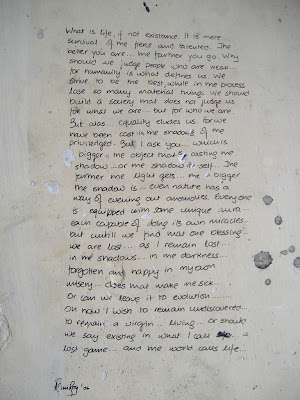 What is life, if not existance. It is mere
survival of the fierce and talented. The
better you are... the further you go. Why
should we judge people who are weak...
for humanity is what defines us. We
strive to be the best, while in the process
lose so many material things. We should
build a society that does not judge us
for what we are.. but for who we are.
But alas... equality eludes us. for we
have been cast in the shadows of the
priviledged. But I ask you.. which is
bigger.. the object that is casting the
shadow.. or the shadow itself... The
further the light gets... the bigger
the shadow is... even nature has a
way of evening out anomolies. Everyone
is equipped with some unique aura...
each capable of doing its own miracles..
but untill we find that one blessing..
we are lost... as I remain lost...
in the shadows... in the darkness..
forgotten and happy in my own
misery... does that make me sick....
Or can we leave it to evolution......
Oh how I wish to remain undiscovered..
to remain a virgin... living... or should
we say existing in what I call a
lost game... and the world calls life...